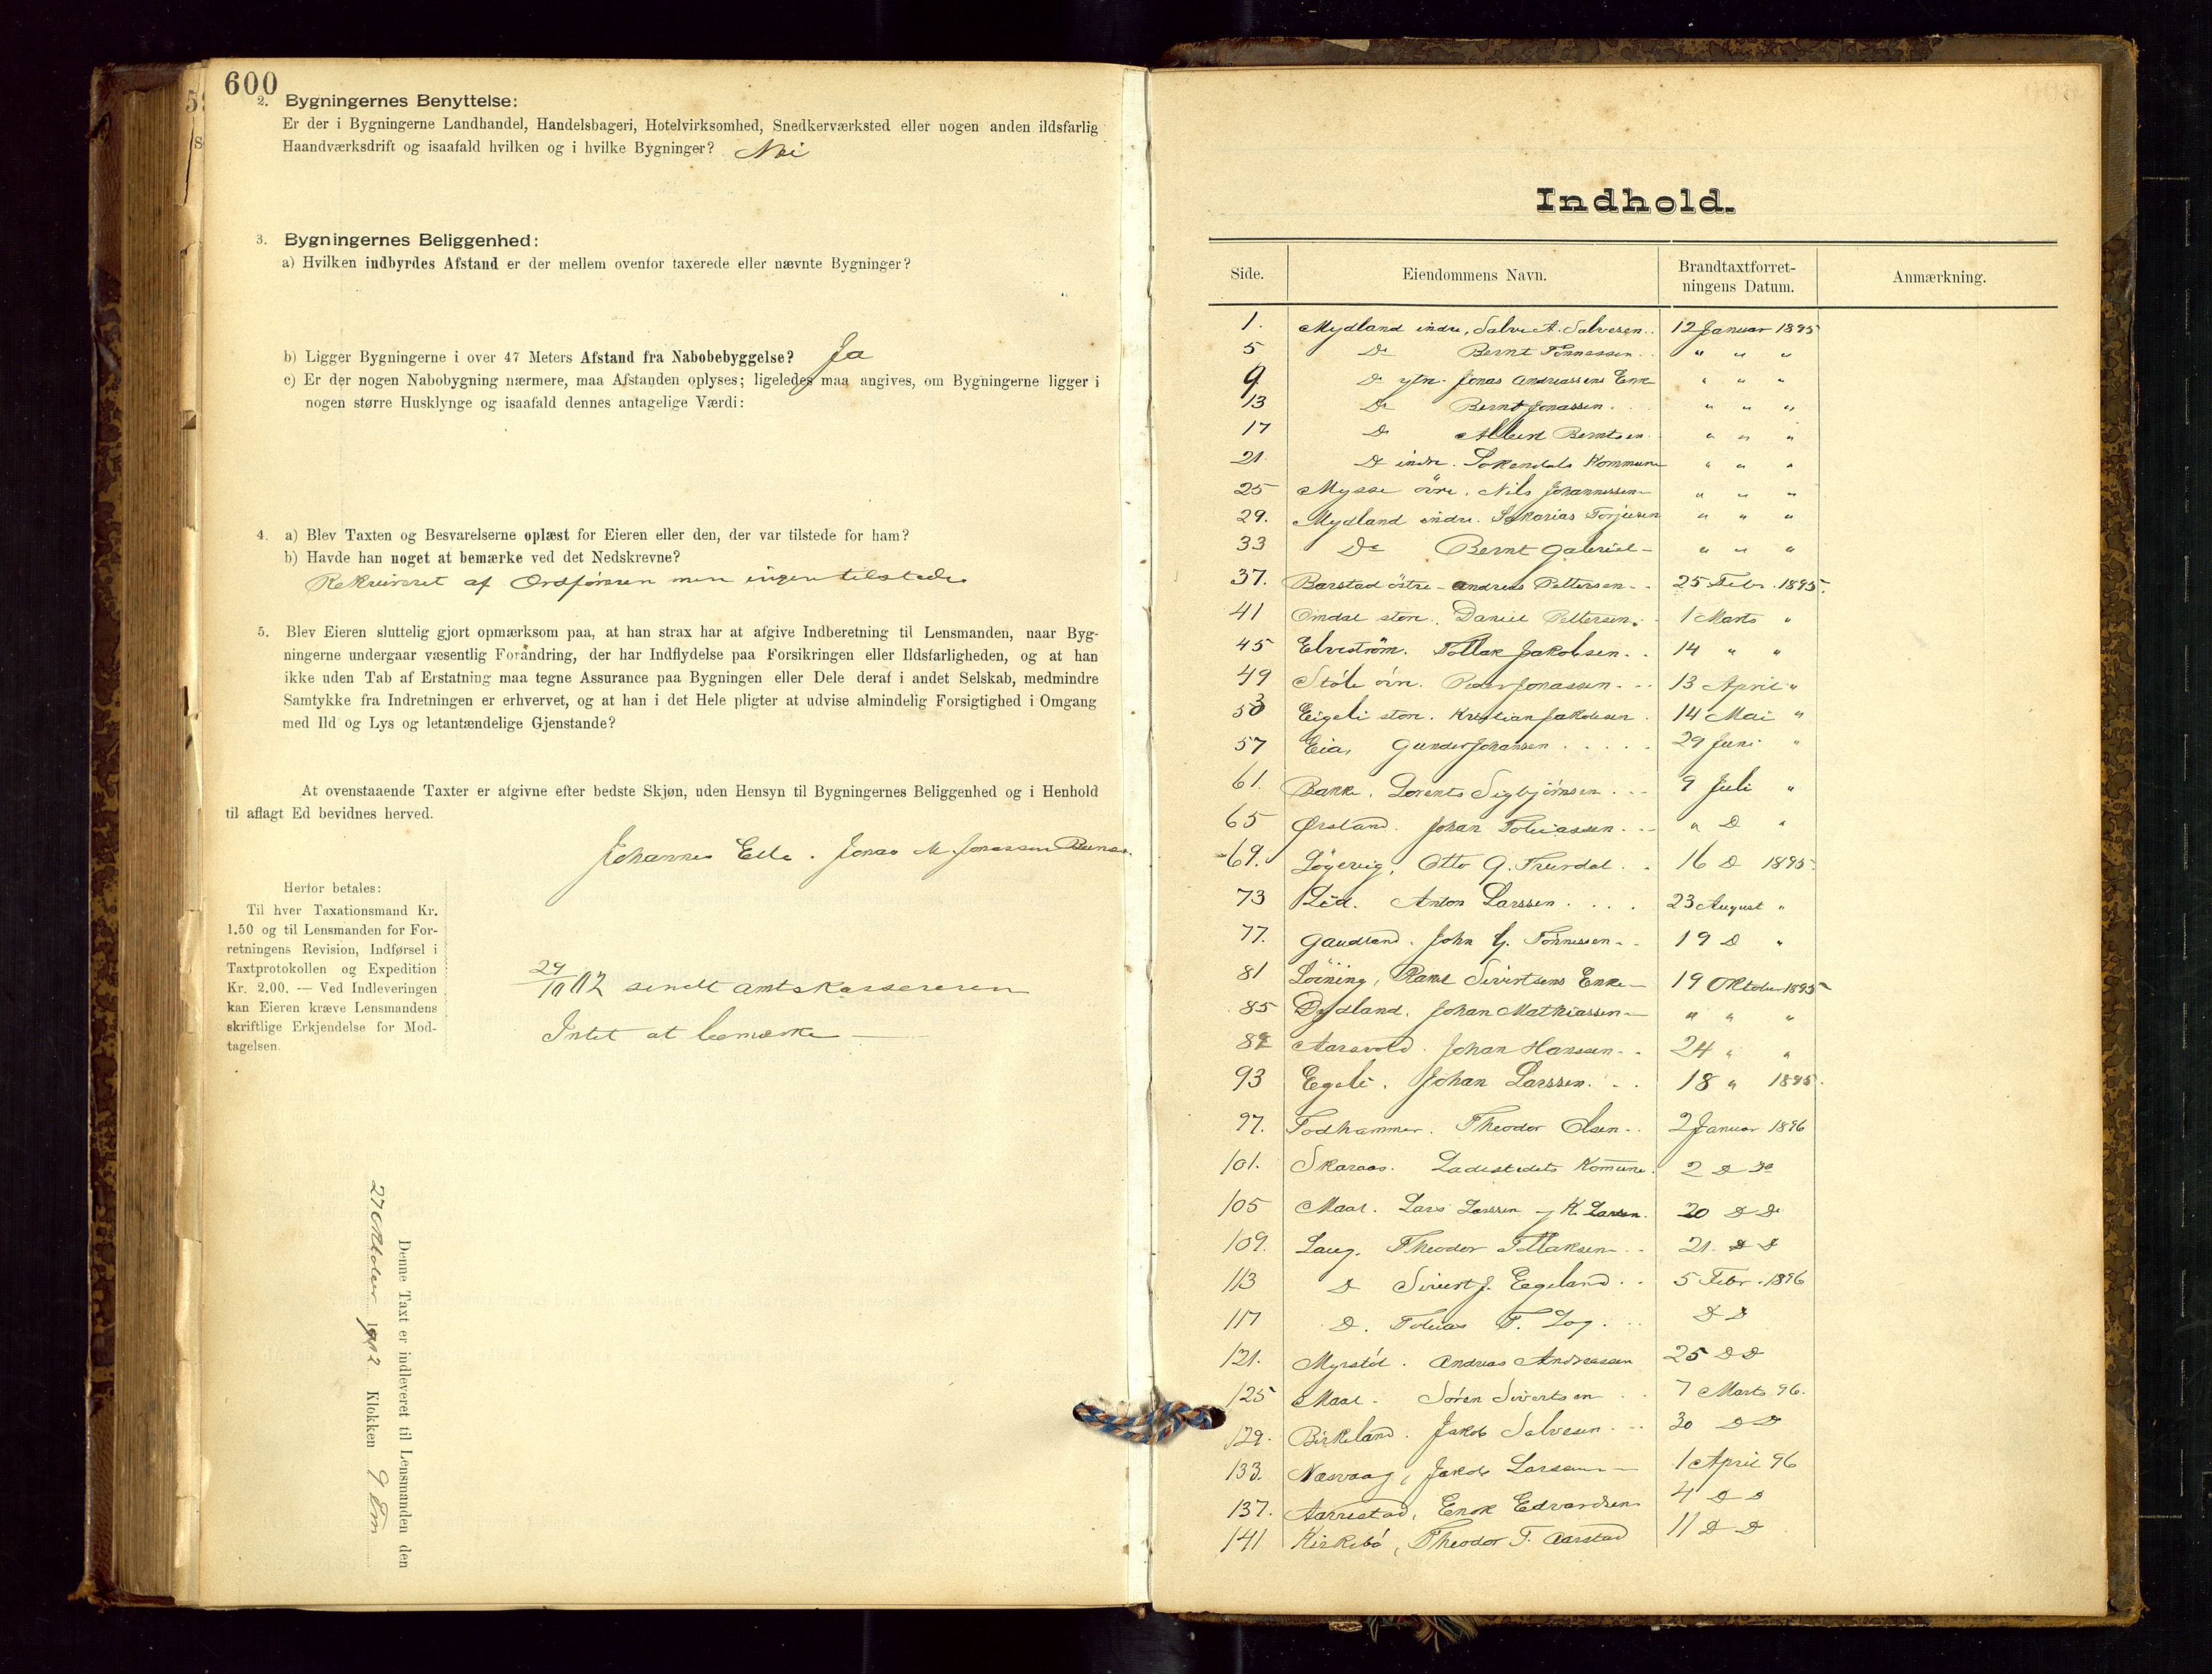 600
2. Bygningernes Benyttelse:
Er der i Bygningerne Landhandel, Handelsbageri, Hotelvirksomhed, Snedkerværksted eller nogen anden ildsfarlig
Haandværksdrift og isaafald hvilken og i hvilke Bygninger? Nei
3. Bygningernes Beliggenhed:
a) Hvilken indbyrdes Afstand er der mellem ovenfor taxerede eller nævnte Bygninger?
b) Ligger Bygningerne i over 47 Meters Afstand fra Nabobebyggelse? Ja
c) Er der nogen Nabobygning nærmere, maa Afstanden oplyses; ligeledes maa angives, om Bygningerne ligger i
nogen større Husklynge og isaafald dennes antagelige Værdi:
4. a) Blev Taxten og Besvarelserne oplæst for Eieren eller den, der var tilstede for ham?
b) Havde han noget at bemærke ved det Nedskrevne?
Rekvireret af Ordføreren men ingen tilstede
5. Blev Eieren sluttelig gjort opmærksom paa, at han strax har at afgive Indberetning til Lensmanden, naar Byg-
ningerne undergaar væsentlig Forandring, der har Indflydelse paa Forsikringen eller Ildsfarligheden, og at han
ikke uden Tab af Erstatning maa tegne Assurance paa Bygningen eller Dele deraf i andet Selskab, medmindre
Samtykke fra Indretningen er erhvervet, og at han i det Hele pligter at udvise almindelig Forsigtighed i Omgang
med Ild og Lys og letantændelige Gjenstande?
At ovenstaaende Taxter er afgivne efter bedste Skjøn, uden Hensyn til Bygningernes Beliggenhed og i Henhold
til aflagt Ed bevidnes herved.
Johannes Elle. Jonas M. Jonassen
Herfor betales:
Til hver Taxationsmand Kr.
1.50 og til Lensmanden for For-
retningens Revision, Indførsel i
Taxtprotokollen og Expedition
Kr. 2.00. — Ved Indleveringen
kan Eieren kræve Lensmandens
skriftlige Erkjendelse for Mod-
tagelsen.
29/10 02 sendt amtskassereren
Intet at bemærke —
Denne Taxt er indleveret til Lensmanden den
27 Oktober 1902 Klokken 9 Fm
Indhold.
Side. Eiendommens Navn. Brandtaxtforret-
ningens Datum. Anmærkning.
1. Mydland indre, Salve A. Salvesen.. 12 Januar 1895
5 Do Bernt Tønnessen.. " " "
9 Do ytre. Jonas Andreassens Enke " " "
13 Do Bernt Jonassen. " " "
17 Do Albert Berntsen " " "
21 Do indre. Sokendals Kommune " " "
25 Mysse övre. Nils Johannessen " " "
29. Mydland indre. Sakarias Torjusen " " "
33 Do Bernt Gabriel- " " "
37. Barstad östre - Andreas Pettersen - 25 Febr. 1895.
41 Omdal store. Daniel Pettersen. 1 Marts "
45 Elveström. Tollak Jakobsen.. 14 " "
49 Stöle övre. Peder Jonassen... 13 April "
53 Eigeli store. Kristian Jakobsen. 14 Mai "
57 Eia, Gunder Johansen..... 29 Juni "
61. Bakke, Lorents Sigbjørnsen.. 9 Juli "
65 Ørsland. Johan Tobiassen... " D "
69. Løgevig, Otto G. Frurdal.. 16 D 1895.
73 Lid. Anton Larssen.... 23 August "
77. Gaudland. John G. Tönnessen.. 19 D "
81 Löining, Sivertsens Enke - 19 Oktober 1895
85 Dydland. Johan Mathiassen - " " "
89 Aarsvold. Johan Hanssen.. 24 " "
93 Egeli. Johan Larssen... 18 " 1895.
97. Todhammer. Theodor Olsen.. 2 Januar 1896
101. Skaraas. Ladestedets Komune. 2 D Do
105 Maal. Lars Larssen og K. Larsen. 20 D Do
109. Laug. Theodor Tollaksen.. 21. D D
113 D Sivert J. Eegeland.. 5 Febr. 1896
117 D. Tobias T. Log... D D
121. Myrstöl. Andreas Andreassen 25 D D
125 Maal. Sören Sivertsen.. 7 Marts 96.
129. Birkeland. Jakob Salvesen... 30 D D
133. Næsvaag, Jakob Larssen — 1 April 96
137. Aarrestad, Enok Edvardsen 4 D D
141 Kirkebö, Theodor T. Aarstad 11 D D